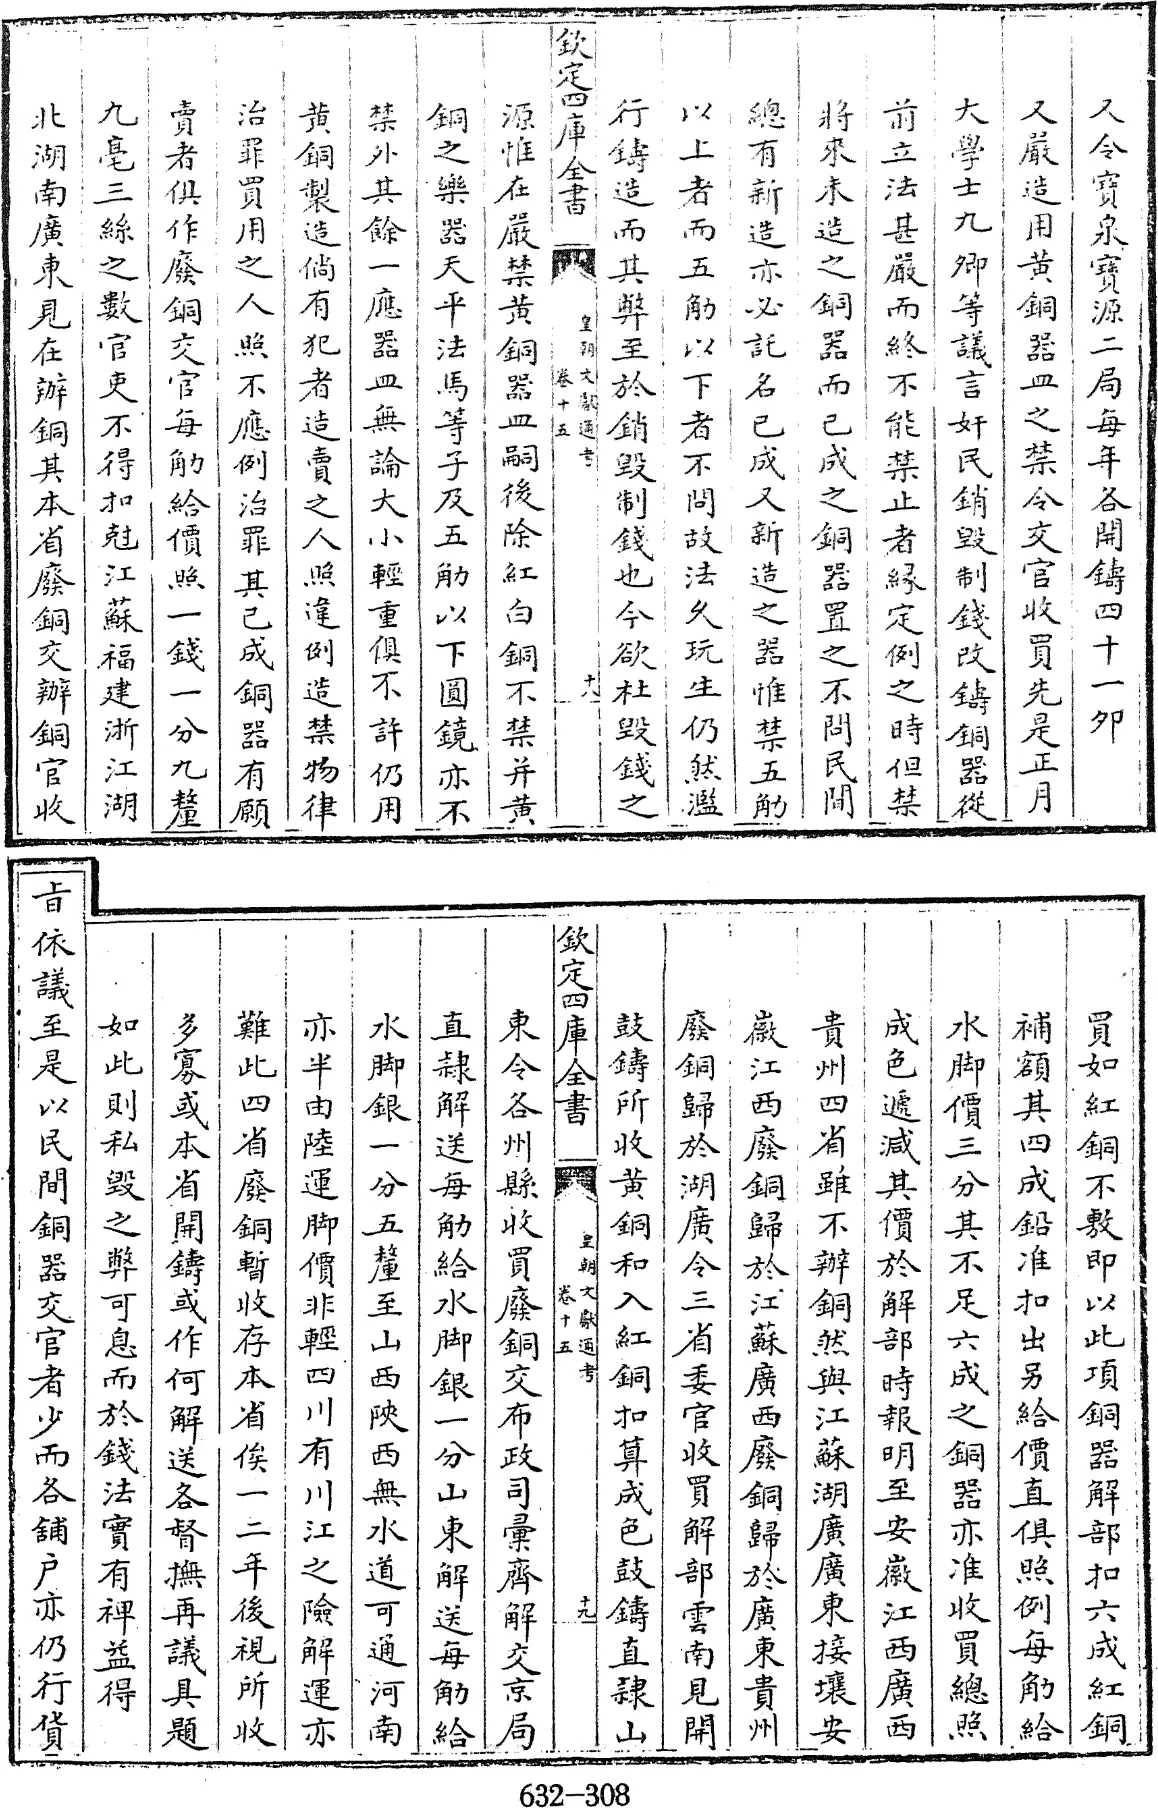 又令寶泉寶源二局每年各開鑄四十一夘
又嚴造用黄銅器皿之禁令交官收買先是正月
大學士九卿等議言奸民銷毀制錢改鑄銅器從
前立法甚嚴而終不能禁止者縁定例之時但禁
將來未造之銅器而已成之銅器置之不問民間
總有新造亦必託名已成又新造之器惟禁五觔
以上者而五觔以下者不問故法久玩生仍然濫
行鑄造而其弊至於銷毀制錢也今欲杜毀錢之
欽定四庫全書
皇朝文獻通考
卷十五
十八
源惟在嚴禁黄銅器皿嗣後除紅白銅不禁并黄
銅之樂器天平法馬等子及五觔以下圓鏡亦不
禁外其餘一應器皿無論大小輕重俱不許仍用
黄銅製造倘有犯者造賣之人照違例造禁物律
治罪買用之人照不應例治罪其已成銅器有願
賣者俱作廢銅交官每觔給價照一錢一分九釐
九毫三絲之數官吏不得扣尅江蘇福建浙江湖
北湖南廣東見在辦銅其本省廢銅交辦銅官收
買如紅銅不敷即以此項銅器解部扣六成紅銅
補額其四成鉛准扣出另給價直俱照例每觔給
水脚價三分其不足六成之銅器亦准收買總照
成色遞減其價於解部時報明至安徽江西廣西
貴州四省雖不辦銅然與江蘇湖廣廣東接壤安
徽江西廢銅歸於江蘇廣西廢銅歸於廣東貴州
廢銅歸於湖廣令三省委官收買解部雲南見開
鼓鑄所收黄銅和入紅銅扣算成色鼓鑄直隷山
欽定四庫全書
皇朝文獻通考
卷十五
十九
東令各州縣收買廢銅交布政司彚齊解交京局
直隷解送每觔給水脚銀一分山東解送每觔給
水脚銀一分五釐至山西陜西無水道可通河南
亦半由陸運脚價非輕四川有川江之險解運亦
難此四省廢銅暫收存本省俟一二年後視所收
多寡或本省開鑄或作何解送各督撫再議具題
如此則私毀之弊可息而於錢法實有裨益得
旨依議至是以民間銅器交官者少而各舖户亦仍行貨
632-308